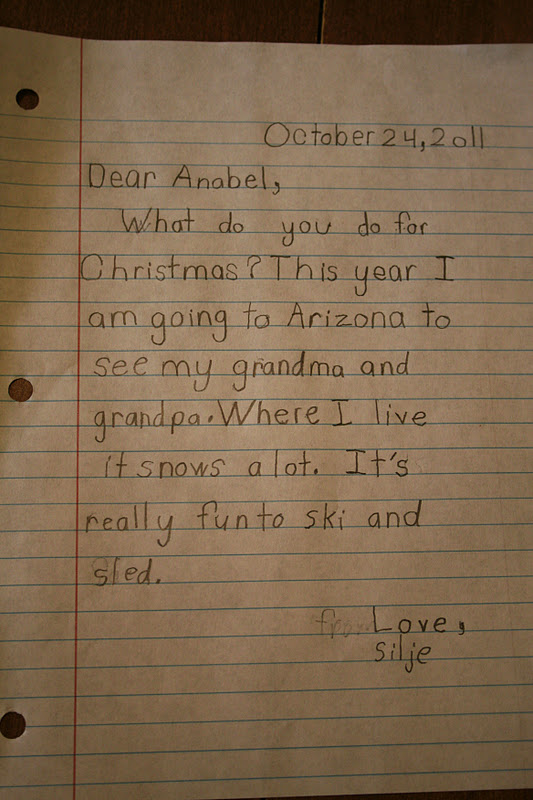 October 24, 2011
Dear Anabel,
What do you do for
Christmas? This year I
am going to Arizona to
see my grandma and
grandpa. Where I live
it snows a lot. It's
really fun to ski and
sled.
from Love,
Silje